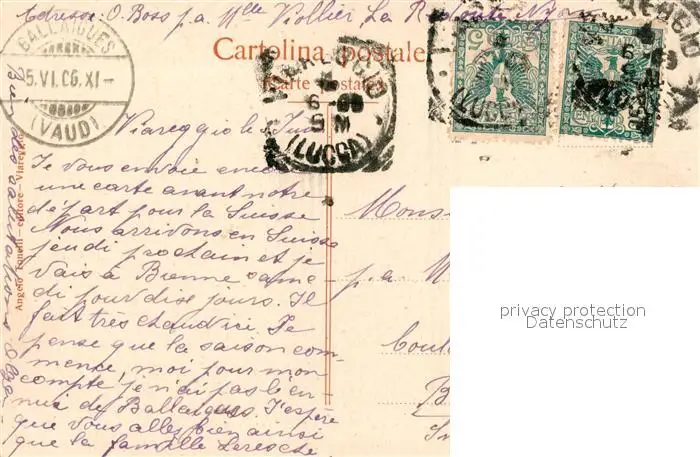 Adresse: O. Boss p. a. Mlle Viollier La Redoute Nyon
Cartolina postale
Carte postale
BALLAIGUES
5.VI.06.XI-
(VAUD)
VIAREGGIO
6 06
9 M
(LUCCA)
Viareggio le Juin
Je vous envoie encore
une carte avant notre
départ pour la Suisse
Nous arrivons en Suisse
jeudi prochain et je
vais à Bienne same-
di pour dix jours. Il
fait très chaud ici. Je
pense que la saison com-
mence, moi pour mon
compte je n'ai pas li en-
nui de Ballaigues. J'espère
que vous allez bien ainsi
que la famille Leresche
des salutations Olga
Angelo Fanelli - editore - Viareggio
Mons
p. a. M
Coul
B
privacy protection
Datenschutz